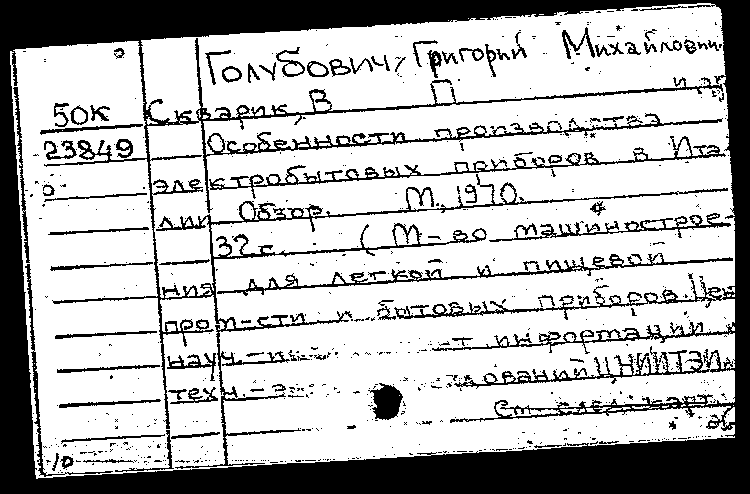 Голубович, Григорий Михайлович
50К Скварик, В П и др
23849 Особенности производства
электробытовых приборов в Ита-
лии Обзор. М., 1970.
32 с. (М-во машинострое-
ния для легкой и пищевой
пром-сти и бытовых приборов. Цен
науч.-и т информации и
техн.-э дований ЦНИИТЭИ
См. след. карт.
10